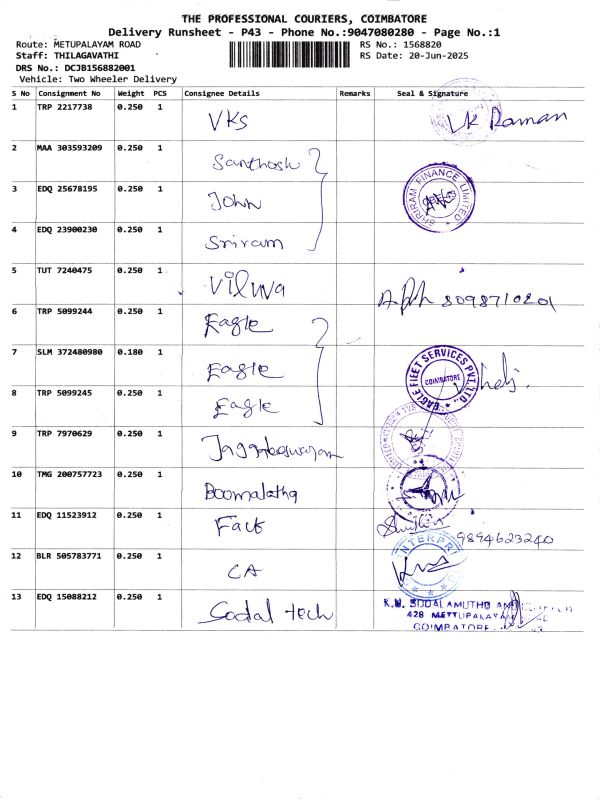 THE PROFESSIONAL COURIERS, COIMBATORE
Delivery Runsheet - P43 - Phone No.:9047080280 - Page No.:1
Route: METUPALAYAM ROAD RS No.: 1568820
Staff: THILAGAVATHI RS Date: 20-Jun-2025
DRS No.: DCJB156882001
Vehicle: Two Wheeler Delivery
S No Consignment No Weight PCS Consignee Details Remarks Seal & Signature
1 TRP 2217738 0.250 1 VKS VK Raman
2 MAA 303593209 0.250 1 Santhosh
3 EDQ 25678195 0.250 1 John SHRIRAM FINANCE LIMITED
4 EDQ 23900230 0.250 1 Sriram
5 TUT 7240475 0.250 1 Vilwa 8098710201
6 TRP 5099244 0.250 1 Eagle
7 SLM 372480980 0.180 1 Eagle EAGLE FLEET SERVICES PVT. LTD. COIMBATORE
8 TRP 5099245 0.250 1 Eagle
9 TRP 7970629 0.250 1
10 TMG 200757723 0.250 1 Boomalatha
11 EDQ 11523912 0.250 1 Fact 9894623240
12 BLR 505783771 0.250 1 CA
13 EDQ 15088212 0.250 1 Sodal tech K.N. SUDALAMUTHU AND
428 METTUPALAYAM
COIMBATORE